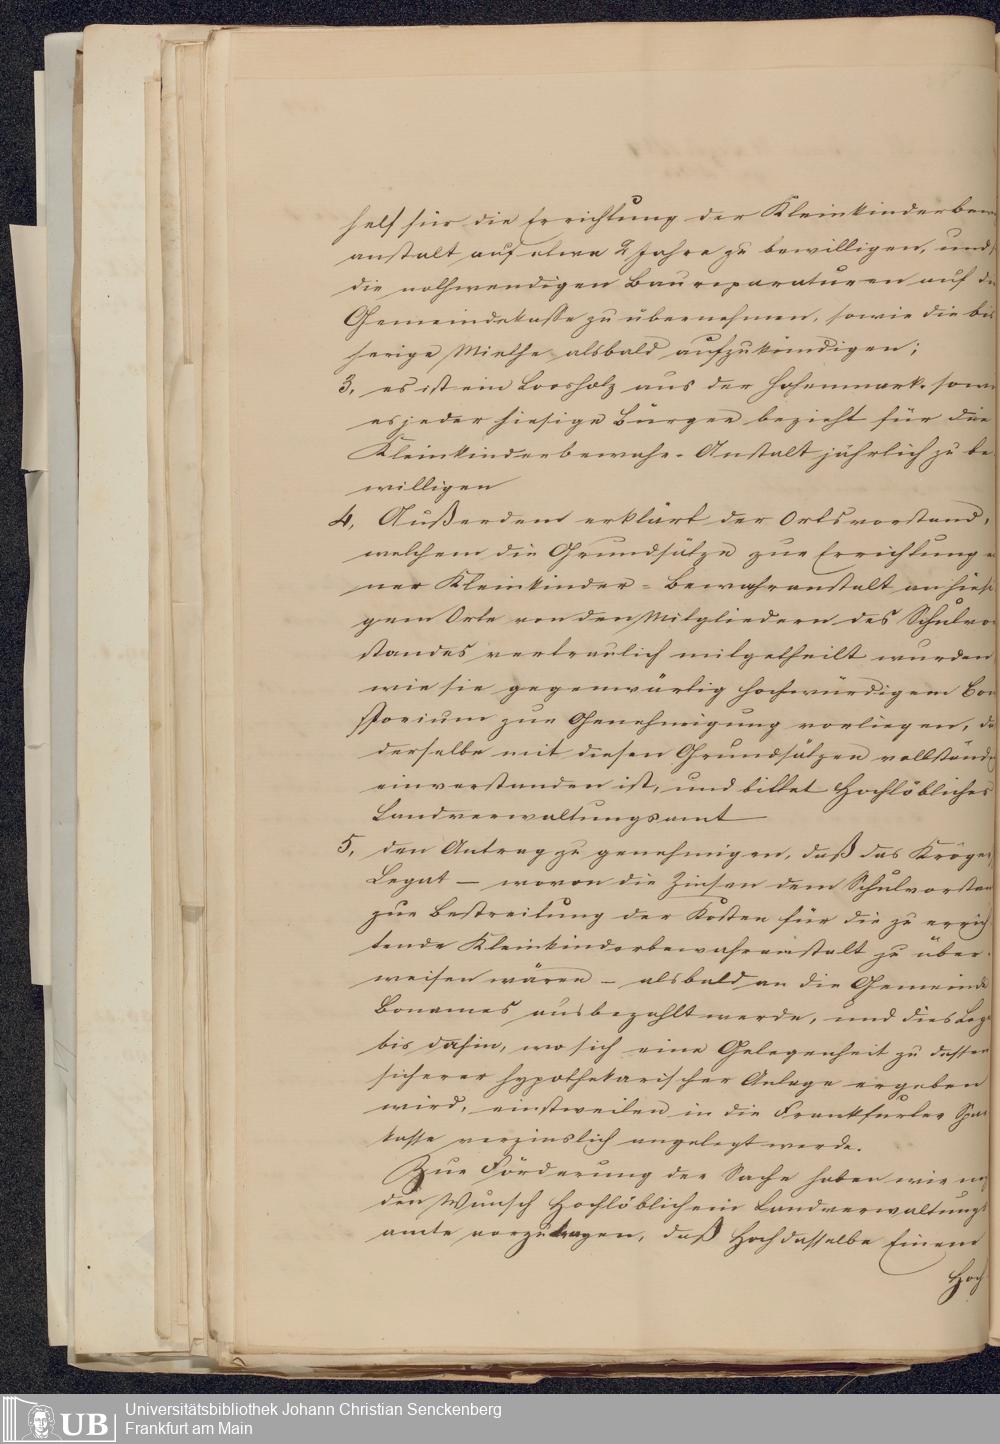 helf für die Errichtung der Kleinkinderbew
anstalt auf etwa 2 Jahre zu bewilligen, und
die nothwendigen Baureparaturen auf d
Gemeindekasse zu übernehmen, sowie die bis
herige Miethe alsbald aufzukündigen;
3, es ist ein Loosholz aus der Hohenmark, sow
es jeder hiesige Bürger bezieht für die
Kleinkinderbewahr-Anstalt jährlich zu be
willigen
4, Außerdem erklärt der Ortsvorstand,
welchem die Grundsätze zur Errichtung e
ner Kleinkinder=Bewahranstalt an hiesi
gem Orte von den Mitgliedern des Schulvor
standes vertraulich mitgetheilt wurden
wie sie gegenwärtig hochwürdigem Con
sistorium zur Genehmigung vorliegen, da
derselbe mit diesen Grundsätzen vollständi
einverstanden ist, und bittet Hochlöbliches
Landverwaltungsamt
5, den Antrag zu genehmigen, daß das Kröger
Legat – wovon die Zinsen dem Schulvorstan
zur Bestreitung der Kosten für die zu errich
tende Kleinkinderbewahranstalt zu über-
weisen wären – alsbald an die Gemeinde
Bonames ausbezahlt werde, und dies Leg
bis dahin, wo sich eine Gelegenheit zu dessen
sicherer hypothekarischer Anlage ergeben
wird, einstweilen in die Frankfurter Spar
kasse verzinslich angelegt werde.
Zur Förderung der Sache haben wir no
den Wunsch Hochlöblichem Landverwaltungs
amte vorzutragen, daß Hochdasselbe Einem
Hoch
UB Universitätsbibliothek Johann Christian Senckenberg
Frankfurt am Main